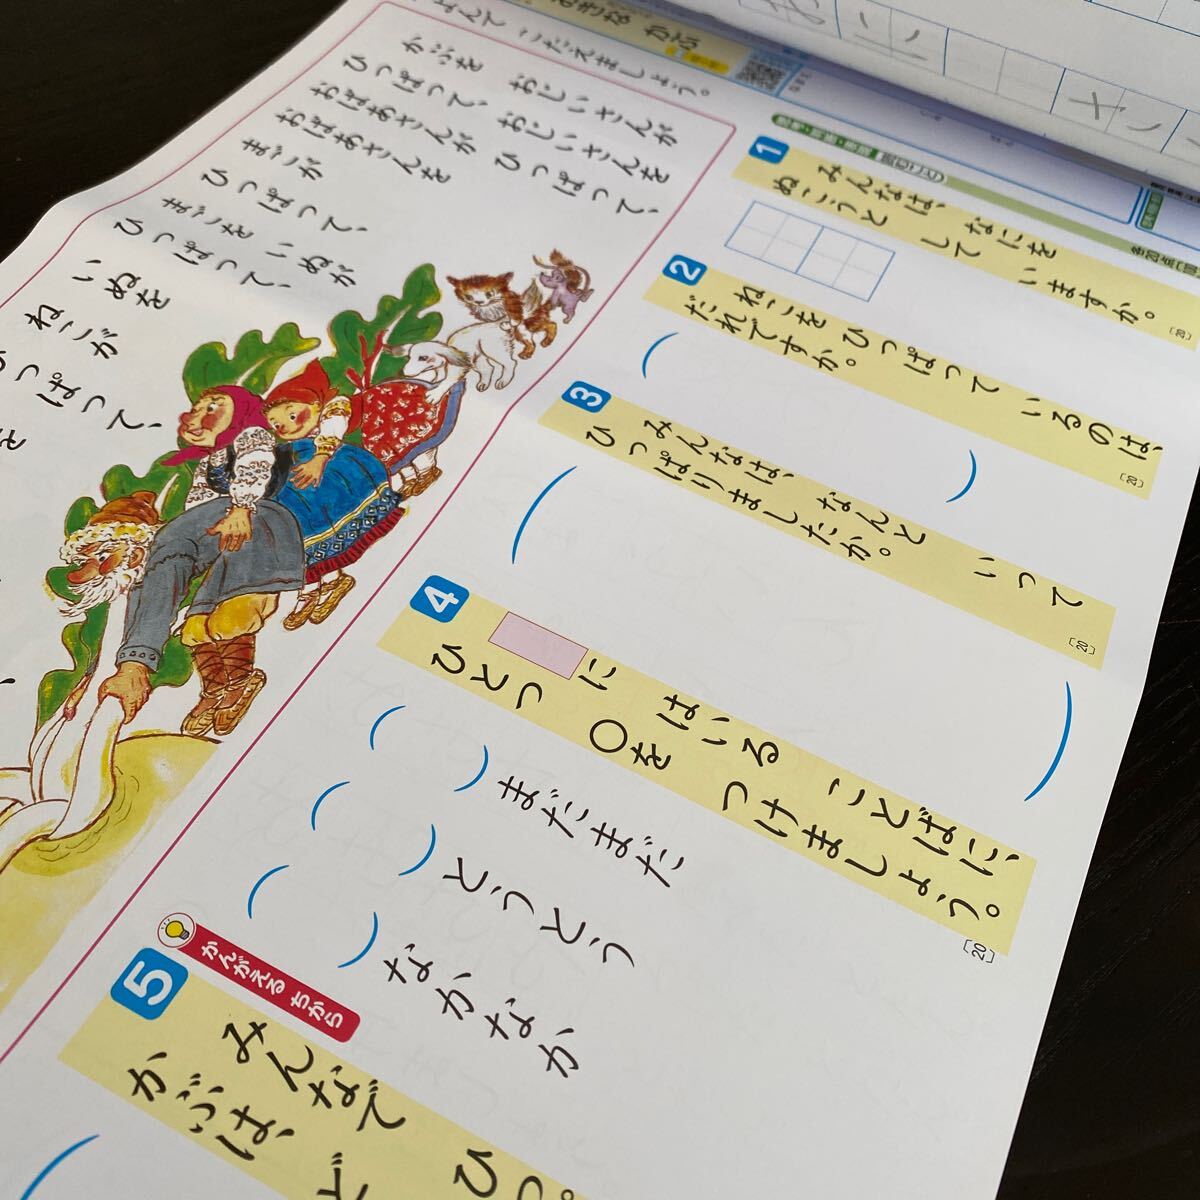 よんで こたえましょう。
かぶを おじいさんが
ひっぱって、おじいさんを
おばあさんが ひっぱって、
おばあさんを
まごが
ひっぱって、
まごを いぬが
ひっぱって、
いぬを
ねこが
ひっぱって、
1
みんなは、なにを
ぬこうと して いますか。
[20]
2
ねこを ひっぱって いるのは、
だれですか。
[20]
3
みんなは、なんと いって
ひっぱりましたか。
[20]
4
に はいる ことばに、
ひとつ ○を つけましょう。
[20]
( ) まだまだ
( ) とうとう
( ) なかなか
かんがえる ちから
5
みんなで ひっ
かぶは、ど